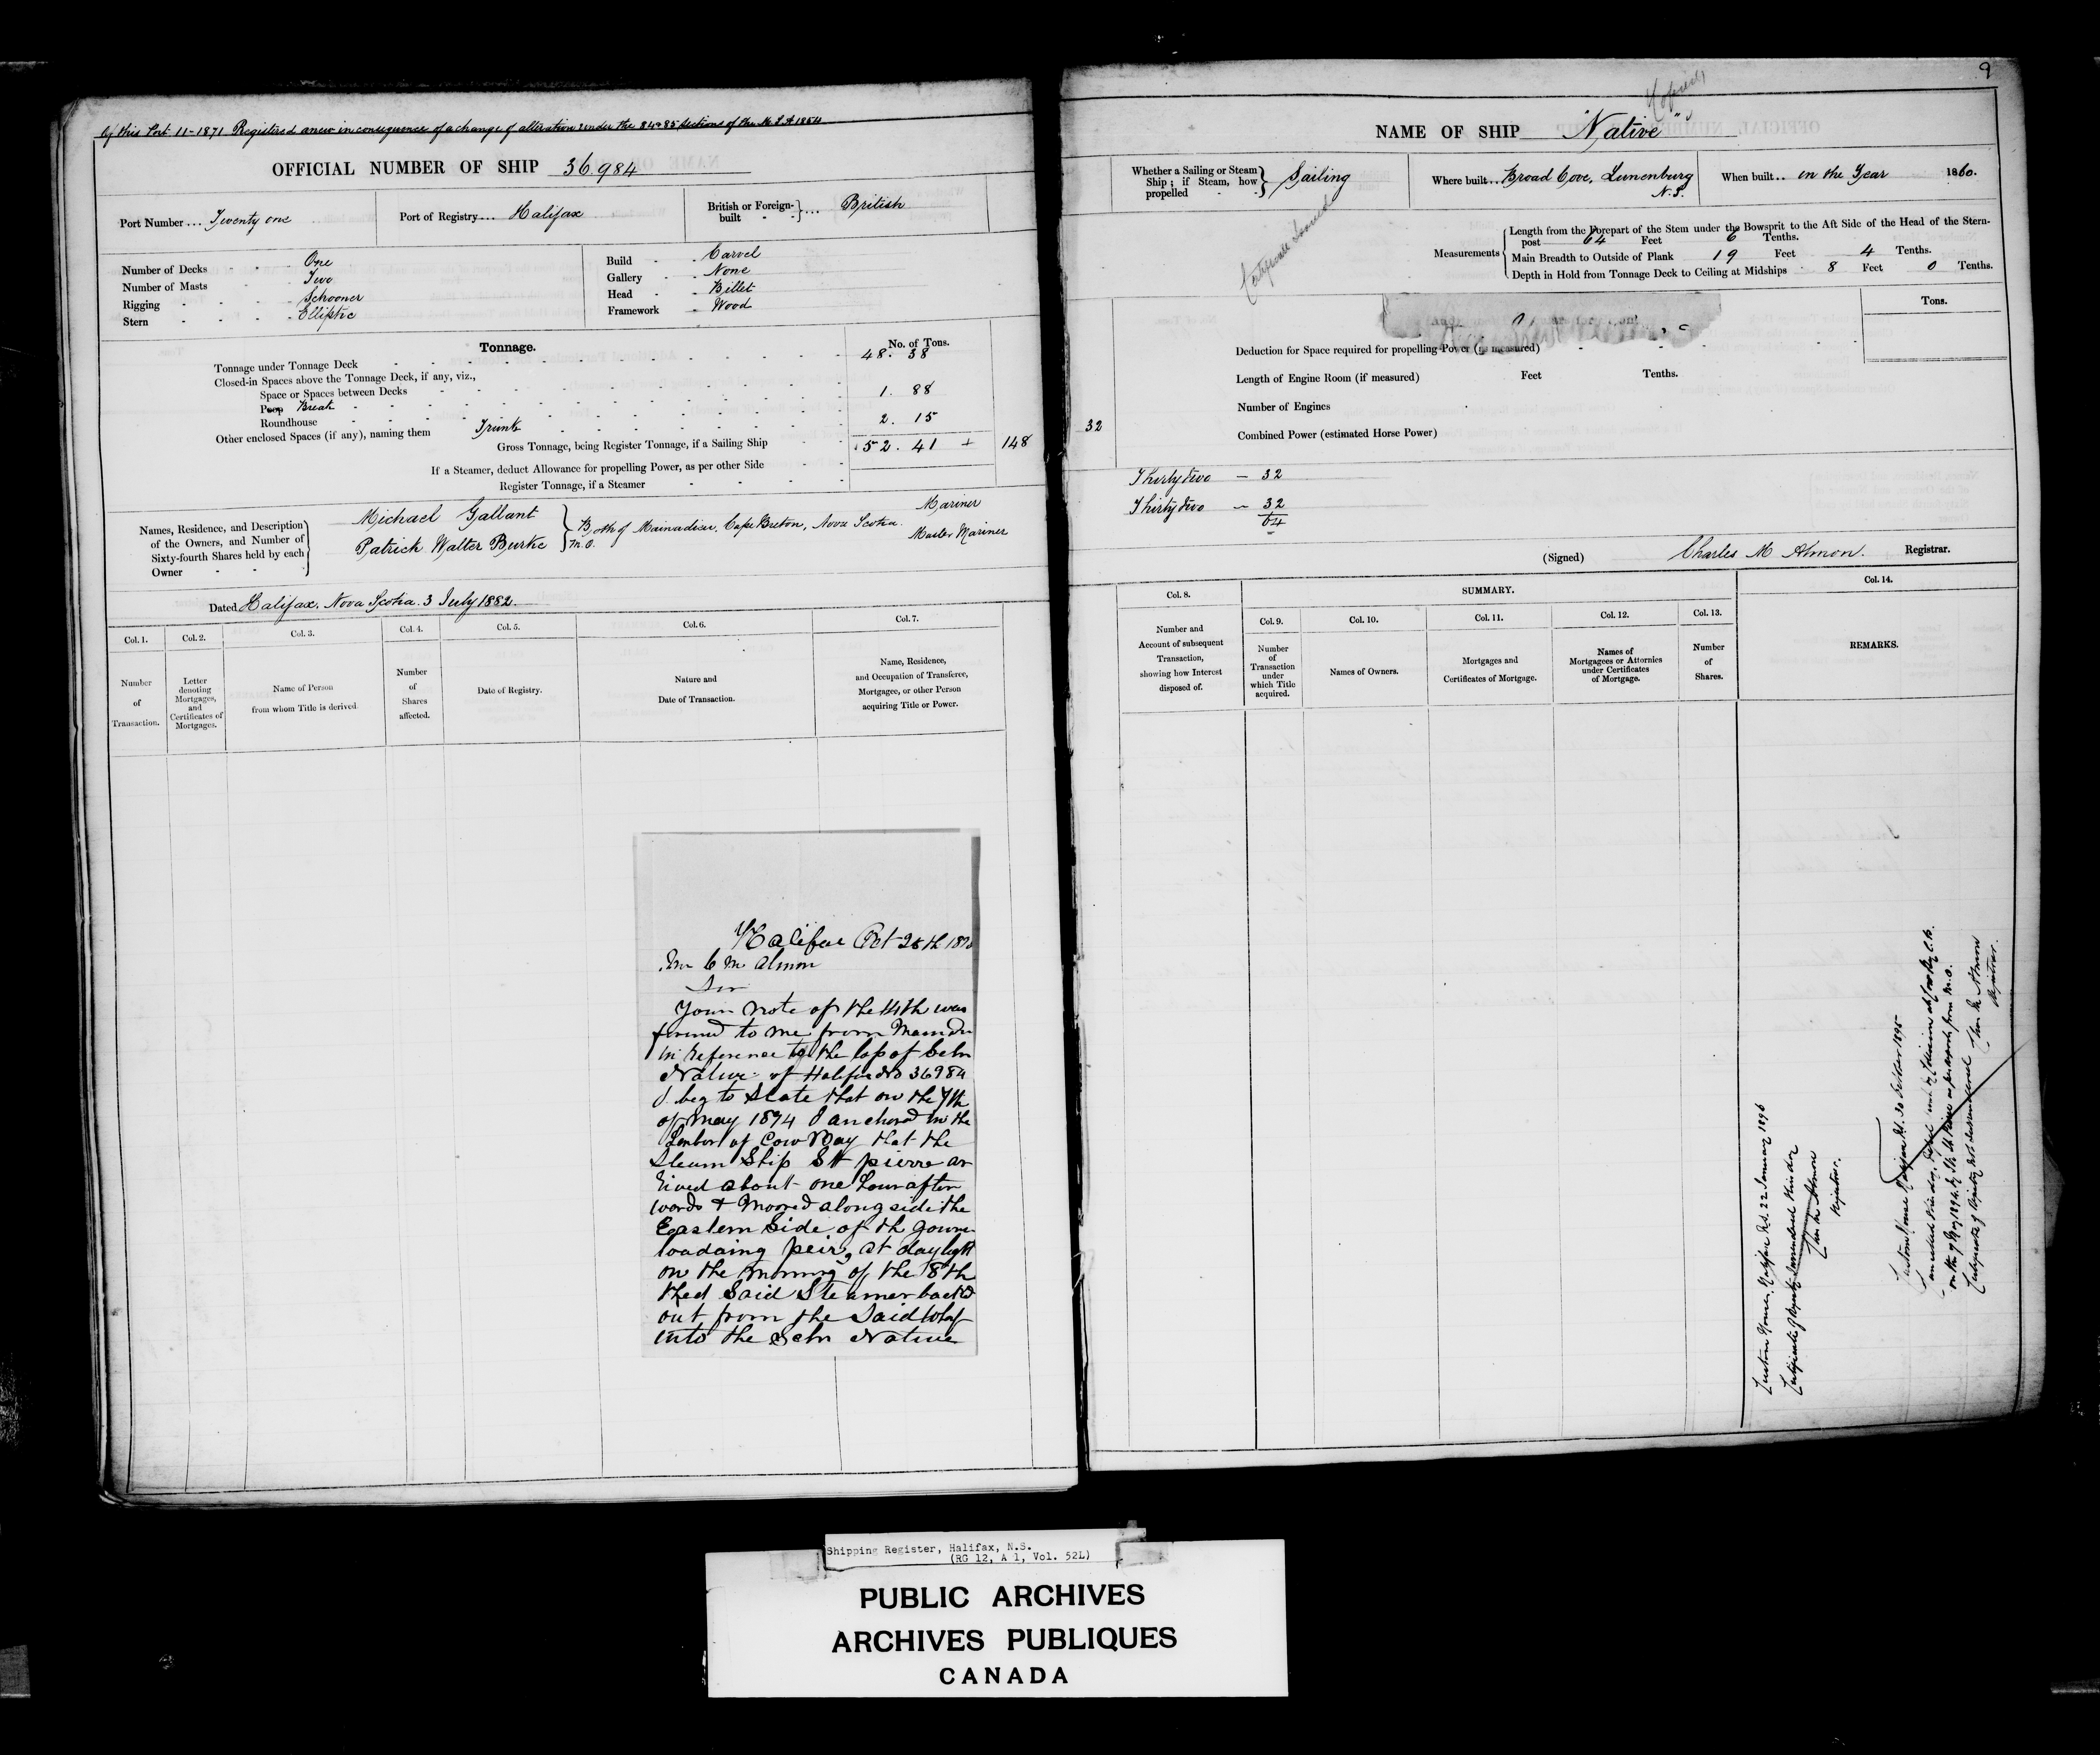 of this Port 11-1871 Registered anew in consequence of a change of alteration under the 84 & 85 sections of the M.S.A 1854
OFFICIAL NUMBER OF SHIP 36.984
Port Number ... Twenty one
Port of Registry.... Halifax
British or Foreign-built .... British
Number of Decks One
Number of Masts Two
Rigging Schooner
Stern Elliptic
Build Carvel
Gallery None
Head Billet
Framework Wood
Tonnage.
No. of Tons.
Tonnage under Tonnage Deck 48. 38
Closed-in Spaces above the Tonnage Deck, if any, viz.,
Space or Spaces between Decks
Poop Break 1. 88
Roundhouse
Other enclosed Spaces (if any), naming them Trunk 2. 15
Gross Tonnage, being Register Tonnage, if a Sailing Ship 52. 41 + 148
If a Steamer, deduct Allowance for propelling Power, as per other Side
Register Tonnage, if a Steamer
Names, Residence, and Description
of the Owners, and Number of
Sixty-fourth Shares held by each
Owner
Michael Gallant
Patrick Walter Burke
M.O.
Both of Mainadieu, Cape Breton, Nova Scotia.
Mariner
Master Mariner
Dated Halifax. Nova Scotia. 3 July 1882.
Col. 1.
Number
of
Transaction.
Col. 2.
Letter
denoting
Mortgages,
and
Certificates of
Mortgages.
Col. 3.
Name of Person
from whom Title is derived
Col. 4.
Number
of
Shares
affected.
Col. 5.
Date of Registry.
Col. 6.
Nature and
Date of Transaction.
Col. 7.
Name, Residence,
and Occupation of Transferee,
Mortgagee, or other Person
acquiring Title or Power.
Halifax Oct 28th
Mr C M Almon
Sir
Your note of the 14th was
to me from
in reference to the loss of Schr
Native of Halifax No 36984
I beg to State that on the 7th
of May 1894 I anchord in the
of Cow Bay that the
Steam Ship St pierre ar
rived about one hour after
words & Moored along side the
Eastern Side of th
loadaing peir, at daylight
on the morning of the 8th
the Said Steamer backed
out from the Said Wharf
into the Schr Native
9
Copied
NAME OF SHIP "Native"
Whether a Sailing or Steam
Ship; if Steam, how
propelled
Sailing
Where built... Broad Cove, Lunenburg
N.S.
When built.. in the Year 1860.
Certificate
Measurements
Length from the Forepart of the Stem under the Bowsprit to the Aft Side of the Head of the Stern-
post 64 Feet 6 Tenths.
Main Breadth to Outside of Plank 19 Feet 4 Tenths.
Depth in Hold from Tonnage Deck to Ceiling at Midships 8 Feet 0 Tenths.
Tons.
Deduction for Space required for propelling Power (as measured)
Length of Engine Room (if measured) Feet Tenths.
Number of Engines
32
Combined Power (estimated Horse Power)
Thirty two — 32
Thirty two — 32
64
(Signed) Charles M Almon. Registrar.
Col. 8.
Number and
Account of subsequent
Transaction,
showing how Interest
disposed of.
SUMMARY.
Col. 9.
Number
of
Transaction
under
which Title
acquired.
Col. 10.
Names of Owners.
Col. 11.
Mortgages and
Certificates of Mortgage.
Col. 12.
Names of
Mortgagees or Attornies
under Certificates
of Mortgage.
Col. 13.
Number
of
Shares.
Col. 14.
REMARKS.
Custom House, Halifax N.S. 22 January 1896
Certificate of Registry Surrendered this day
Chas M Almon
Registrar.
Custom House Halifax N.S. 30 October 1895
on the 7 May 1894
Certificate of Registry not surrendered
Chas M Almon
Registrar.
Shipping Register, Halifax, N.S.
(RG 12, A 1, Vol. 52L)
PUBLIC ARCHIVES
ARCHIVES PUBLIQUES
CANADA